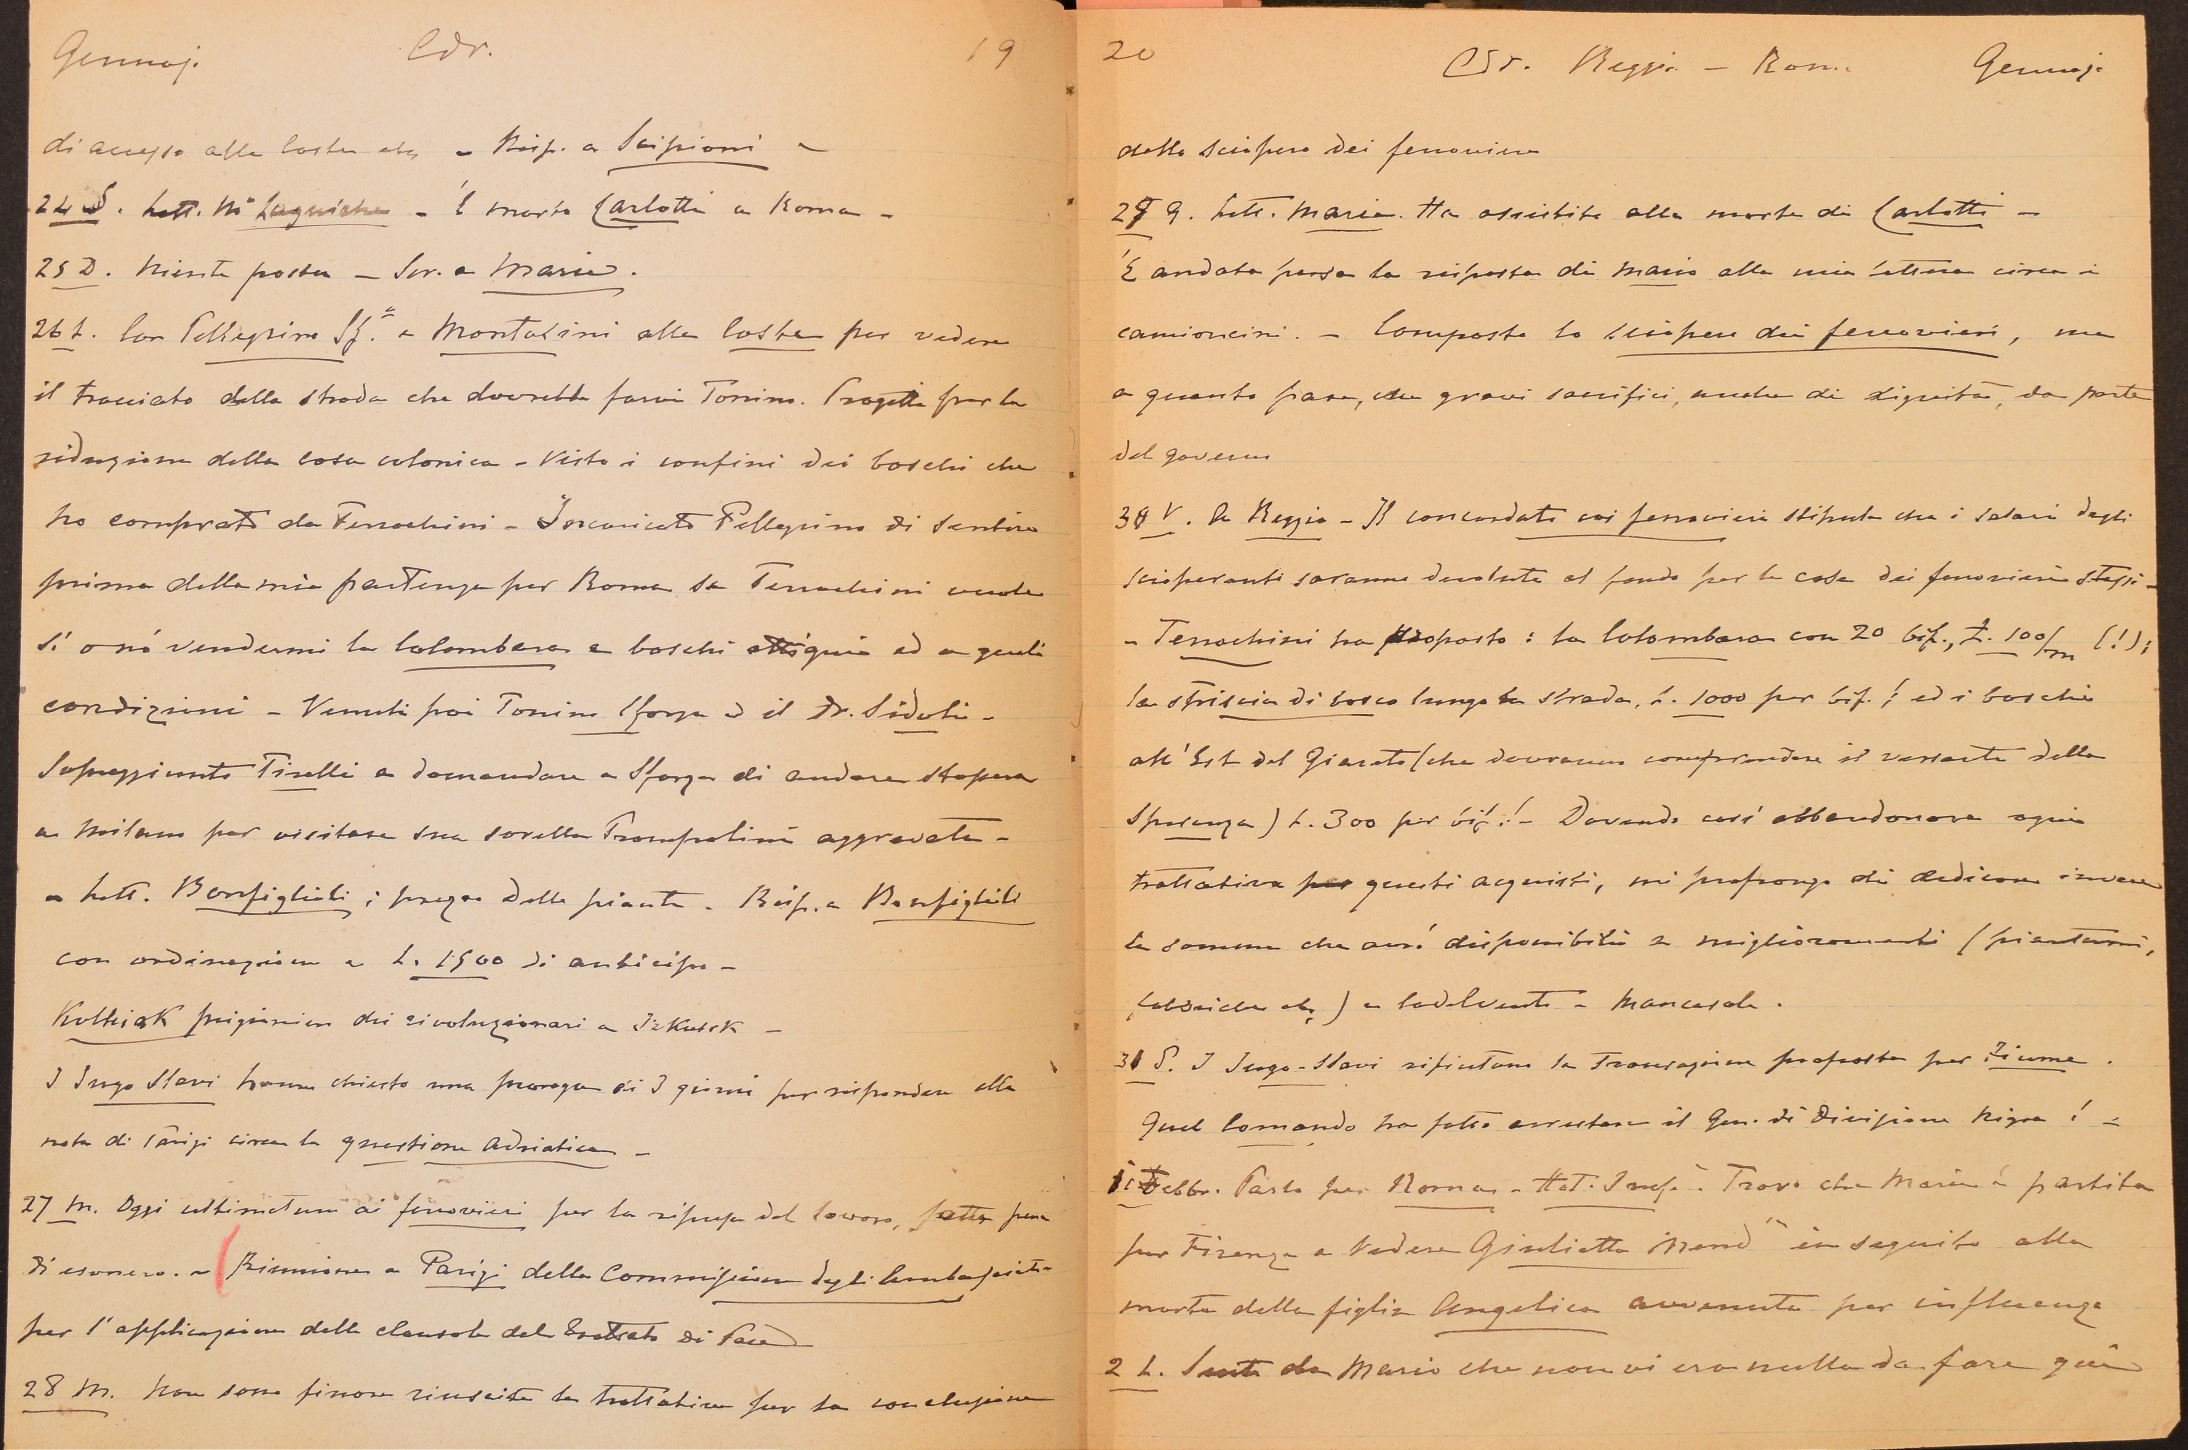 Gennajo Cdr. 19
di accesso alla Costa etc. – Risp. a Scipioni –
24 S. Lett. – È morto Carlotti a Roma –
25 D. Niente posta – Scr. a Maria.
26 L. Con Pellegrino Sf. e Montanini alla Costa per vedere
il tracciato della strada che dovrebbe farvi Tonino. Progetti per la
riduzione della casa colonica – Visto i confini dei boschi che
ho comprato da Terrachini – Incaricato Pellegrino di sentire
prima della mia partenza per Roma se Terrachini vuole
sì o nò vendermi la Colombara e boschi attigui ed a quali
condizioni – Venuti poi Tonino Sforza ed il Dr. Sidoli –
Sopraggiunto Tirelli a domandare a Sforza di andare stasera
a Milano per visitare sua sorella Trampolini aggravata –
– Lett. Bonfiglioli; prezzo delle piante – Risp. a Bonfiglioli
con ordinazione e L. 1500 di anticipo –
Koltciak prigioniero dei rivoluzionari a Irkutsk –
I Jugo Slavi hanno chiesto una proroga di 3 giorni per rispondere alla
nota di Parigi circa la questione Adriatica –
27 M. Oggi ultimatum ai ferrovieri per la ripresa del lavoro, sotto pena
di esonero. – (Riunione a Parigi della Commissione degli Ambasciat.
per l'applicazione delle clausole del Trattato di Pace)
28 M. Non sono finora riuscite le trattative per la conclusione
20 Cdr. Reggio – Roma Gennajo
dello sciopero dei ferrovieri
29 G. Lett. Maria. Ha assistito alla morte di Carlotti –
È andata persa la risposta di Mario alla mia lettera circa i
camioncini. – Composto lo sciopero dei ferrovieri, ma
a quanto pare, con gravi sacrifici, anche di dignità, da parte
del governo
30 V. A Reggio – Il concordato coi ferrovieri stipula che i salari degli
scioperanti saranno devolute al fondo per le case dei ferrovieri stessi –
– Terrachini ha proposto: la Colombara con 20 bif., L. 100/m (!);
la striscia di bosco lungo la strada, L. 1000 per bif.! ed i boschi
all'Est del Giarato (che dovranno comprendere il versante della
Speranza) L. 300 per bif.! – Dovendo così abbandonare ogni
trattativa per questi acquisti, mi propongo di dedicare invece
le somme che avrò disponibili a miglioramenti (piantumi,
fabbriche etc.) a Cadelvento – Mancasale.
31 S. I Jugo-Slavi rifiutano la transazione proposta per Fiume.
Quel Comando ha fatto arrestare il Gen. di Divisione Nigra! –
1 Febbr. Parto per Roma – Hot. Imp. Trovo che Maria è partita
per Firenze a vedere Giulietta in seguito alla
morte della figlia Angelica avvenuta per influenza
2 L. Sento da Mario che non vi era nulla da fare quì